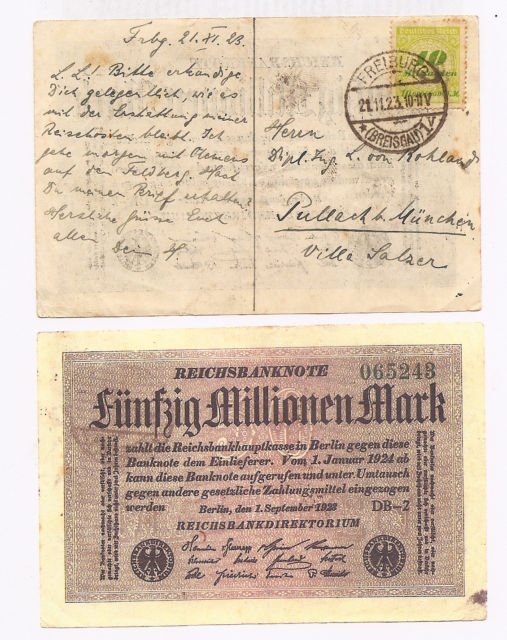 Frbg. 21. XI. 23.
L. L.! Bitte erkundige
Dich gelegentlich, wie es
mit der Erstattung meiner
Reisekosten bleibt. Ich
gehe morgen mit Clemens
auf den Feldberg. Hast
Du meinen Brief erhalten?
Herzliche Grüsse Euch
allen Dein
Deutsches Reich
10
Milliarden
FREIBURG
21.11.23. 10-11 V
* (BREISGAU) 1
Herrn
Dipl. Ing. L. von Rohland
Pullach b. München
Villa Salzer
REICHSBANKNOTE 065243
Fünfzig Millionen Mark
zahlt die Reichsbankhauptkasse in Berlin gegen diese
Banknote dem Einlieferer. Vom 1. Januar 1924 ab
kann diese Banknote aufgerufen und unter Umtausch
gegen andere gesetzliche Zahlungsmittel eingezogen
werden Berlin, den 1. September 1923 DB-2
REICHSBANKDIREKTORIUM